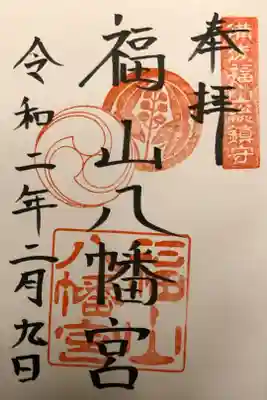 奉拝
備後福山総鎮守
福山八幡宮
福山
八幡宮
令和二年二月九日